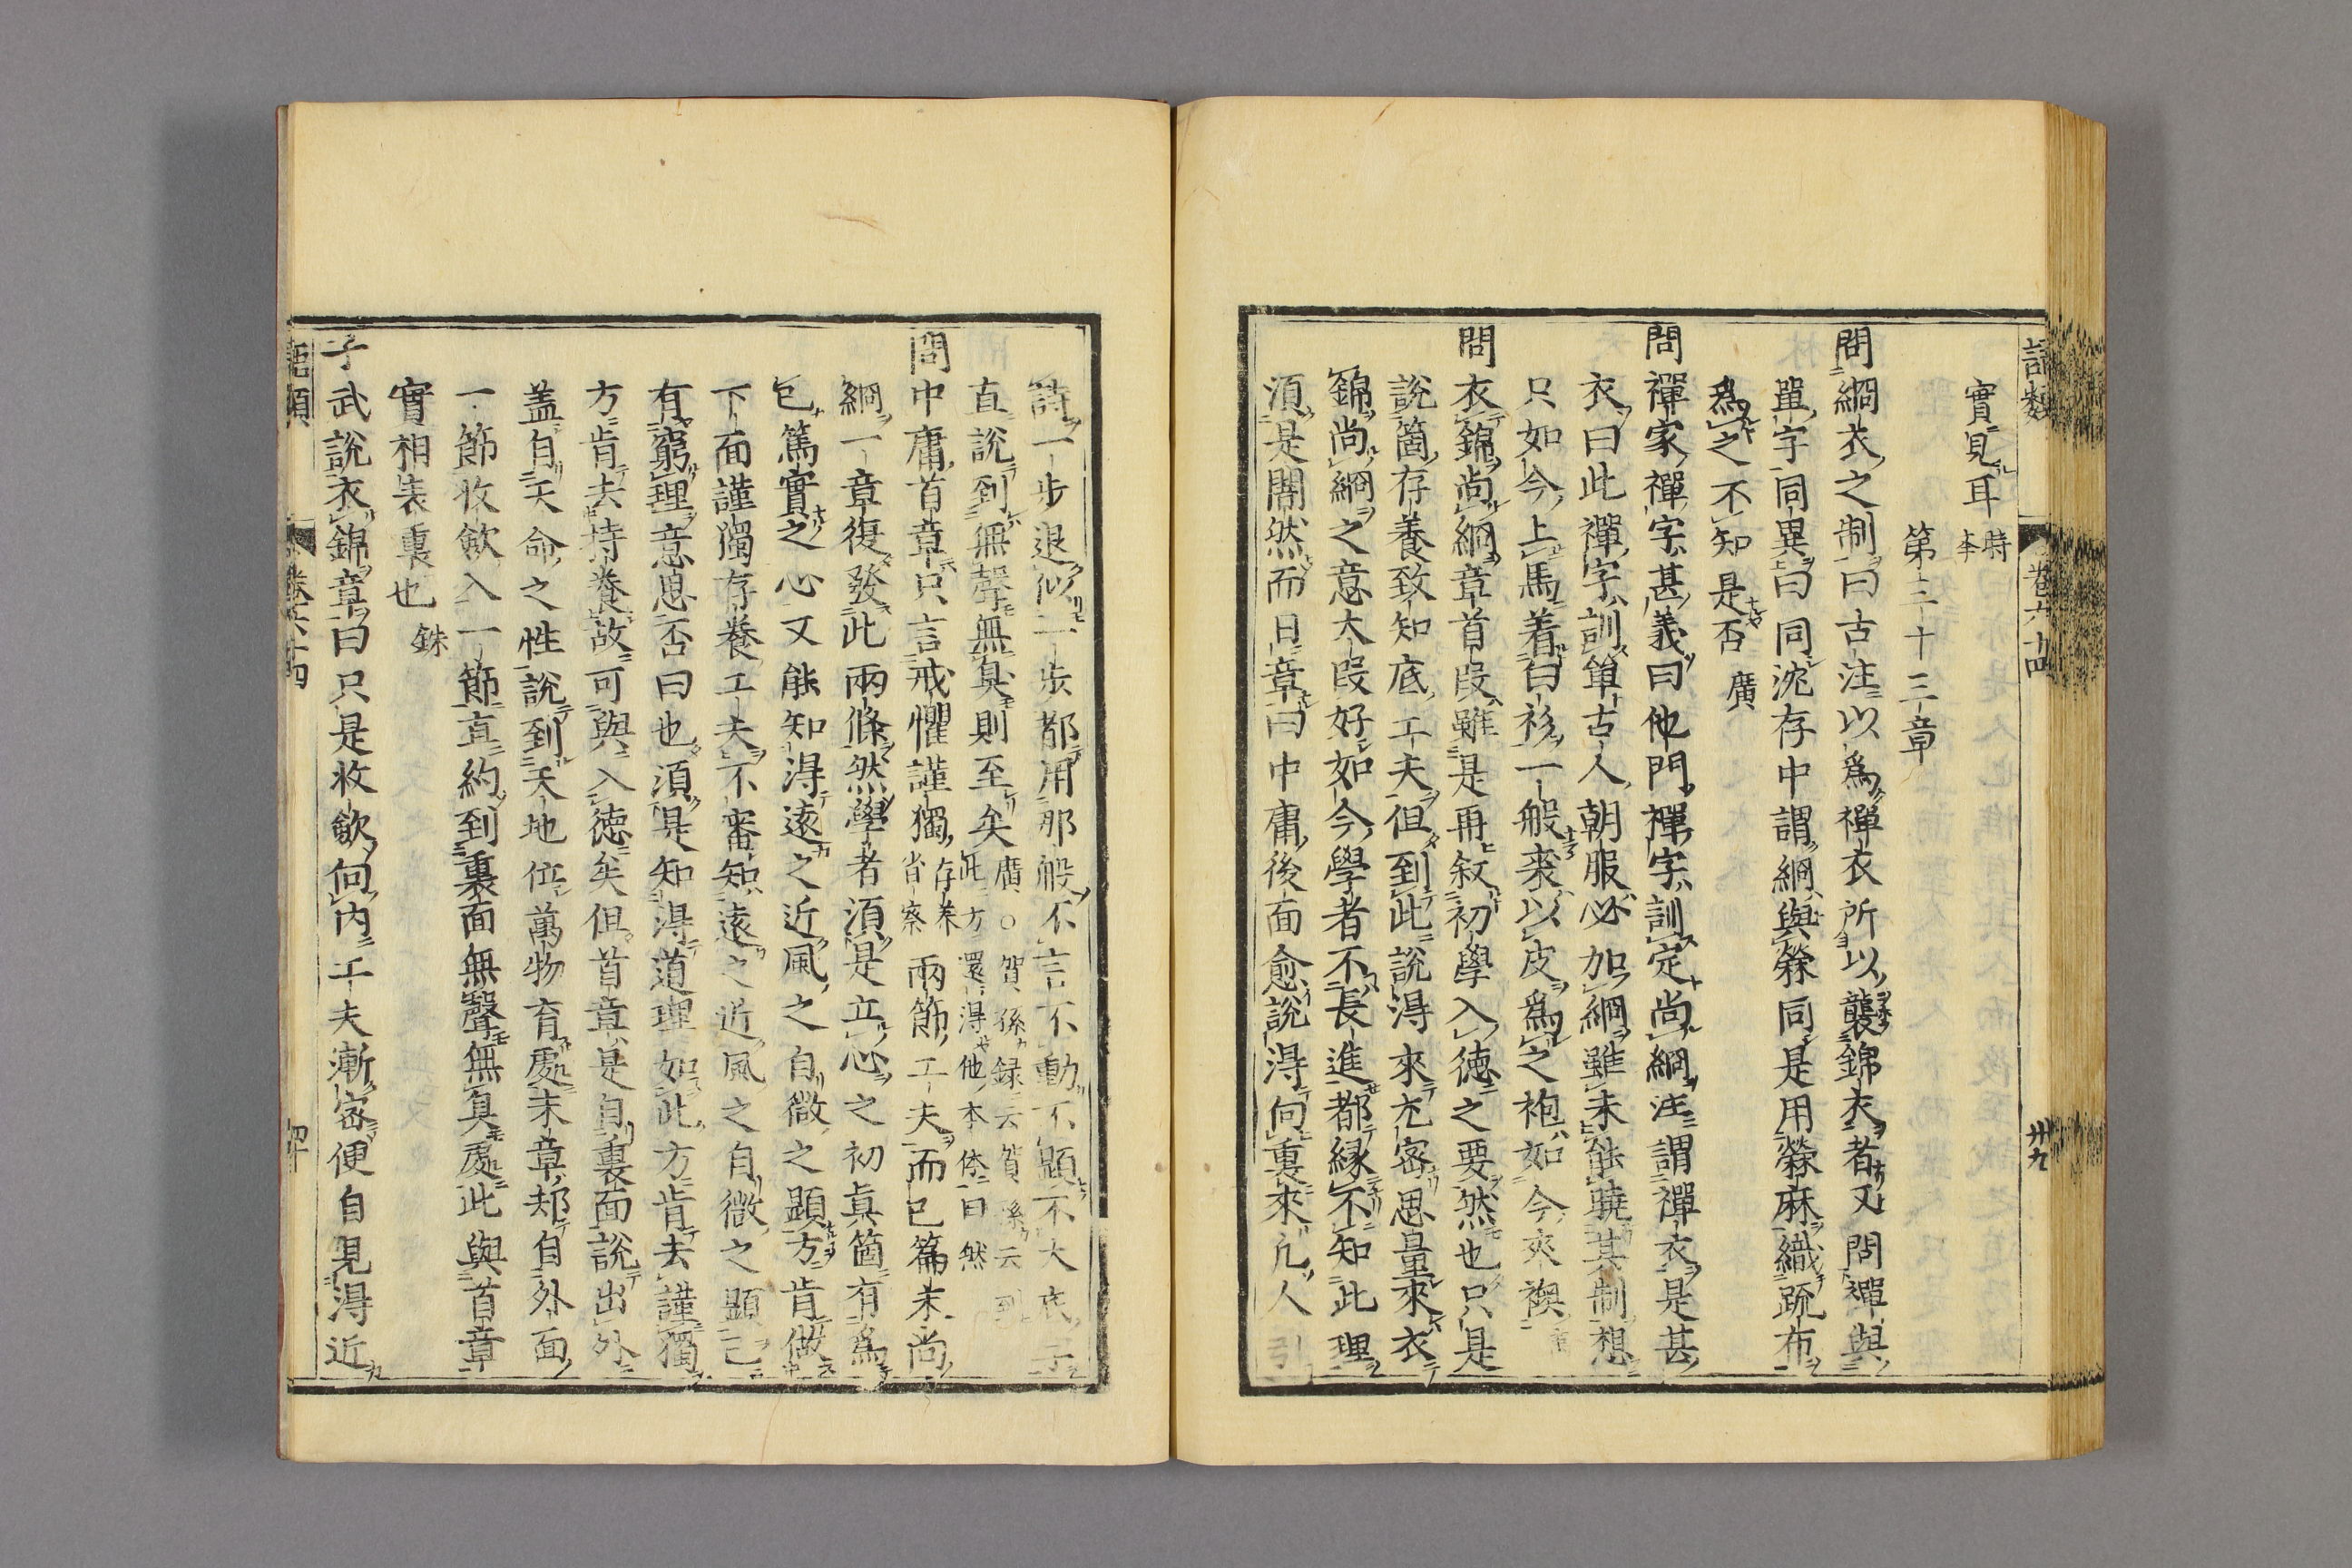 語類
卷六十四
卅九
實見耳 時本
第三十三章
問絅衣之制曰古注以爲襌衣所以襲錦衣者又問襌與
單字同異曰同沈存中謂絅與褧同是用褧麻織疏布
爲之不知是否 廣
問禪家禪字甚義曰他門禪字訓定尚絅注謂襌衣是甚
衣曰此襌字訓單古人朝服必加絅雖未能曉其制想
只如今上馬着白衫一般裘以皮爲之袍如今夾襖
問衣錦尚絅章首段雖是再叙初學入德之要然也只是
說箇存養致知底工夫但到此說得來尤密思量來衣
錦尚絅之意大段好如今學者不長進都縁不知此理
須是闇然而日章曰中庸後面愈說得向裏來凡人引
詩一步退似一步都用那般不言不動不顯不大底字
直說到無聲無臭則至矣 廣○賀孫録云賀孫云到此方還得他本體曰然
問中庸首章只言戒懼謹獨 存養省察 兩節工夫而已篇末尚
絅一章復發此兩條然學者須是立心之初真箇有爲
己篤實之心又能知得遠之近風之自微之顯方肯做
下面謹獨存養工夫不審知遠之近風之自微之顯已
有窮理意思否曰也須是知得道理如此方肯去謹獨
方肯去持養故可與入德矣但首章是自裏面說出外
蓋自天命之性說到天地位萬物育處末章却自外面
一節收斂入一節直約到裏面無聲無臭處此與首章
實相表裏也 銖
子武說衣錦章曰只是收斂向內工夫漸密便自見得近
語類
卷六十四
四十